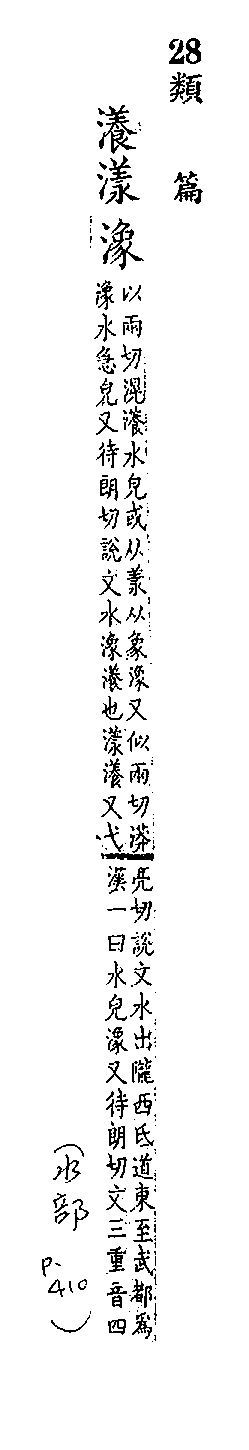 28 類篇
瀁漾潒
以兩切滉瀁水皃或从羕从象潒又似兩切漭
潒水急皃又待朗切說文水潒瀁也漾瀁又弋
亮切說文水出隴西氐道東至武都爲
漢一曰水皃潒又待朗切文三重音四
(水部 P.410)